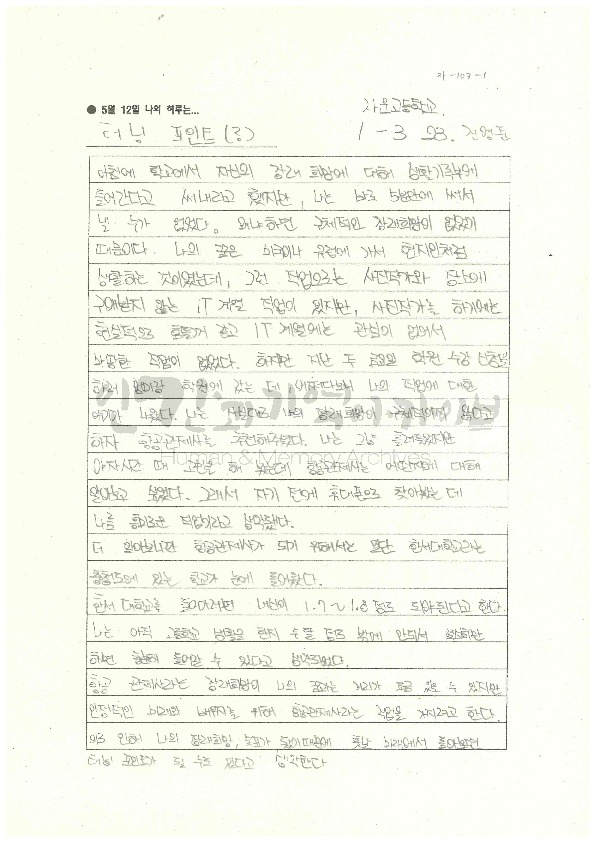 자-103-1
● 5월 12일 나의 하루는...
자운고등학교
터닝 포인트 (?)
1-3 23.
아침에 학교에서 자신의 장래 희망에 대해 생활기록부에
들어간다고 써내라고 했지만, 나는 바로 5분만에 써서
낼 수가 없었다. 왜냐하면 구체적인 장래희망이 없었기
때문이다. 나의 꿈은 미국이나 유럽에 가서 현지인처럼
생활하는 것이었는데, 그런 직업으로는 사진작가와 장소에
구애받지 않는 IT 계열 직업이 있지만, 사진작가를 하기에는
현실적으로 힘들거 같고 IT 계열에는 관심이 없어서
마땅한 직업이 없었다. 하지만 지난 두 학원 수강 신청을
하러 엄마랑 학원에 갔는데 어쩌다보니 나의 직업에 대한
얘기가 나왔다. 나는 나의 장래희망이 구체적이지 않다고
하자 항공관제사를 추천해주셨다. 나는 그냥 흘려들었지만
야자시간 때 고민을 해 봤는데 항공관제사는 어떤지에 대해
알아보고 싶었다. 그래서 자기 전에 휴대폰으로 찾아봤는데
나름 흥미로운 직업이라고 생각했다.
더 알아보니깐 항공관제사가 되기 위해서는 일단 한서대학교라는
충청도에 있는 학교가 눈에 들어왔다.
한서 대학교를 들어가려면 내신이 1.7~1.8 정도 되야된다고 한다.
나는 아직 고등학교 생활을 한지 두달 정도 밖에 안되서 열심히만
하면 충분히 들어갈 수 있다고 생각되었다.
항공 관제사라는 장래희망이 나의 꿈과는 거리가 조금 있을 수 있지만
안정적인 미래와 배우자를 위해 항공관제사라는 직업을 가지려고 한다.
이로 인해 나의 장래희망, 목표가 훗날 미래에서 돌아보면
터닝 포인트가 될 수도 있다고 생각한다
인간과 기억 아카이브
Human & Memory Archives